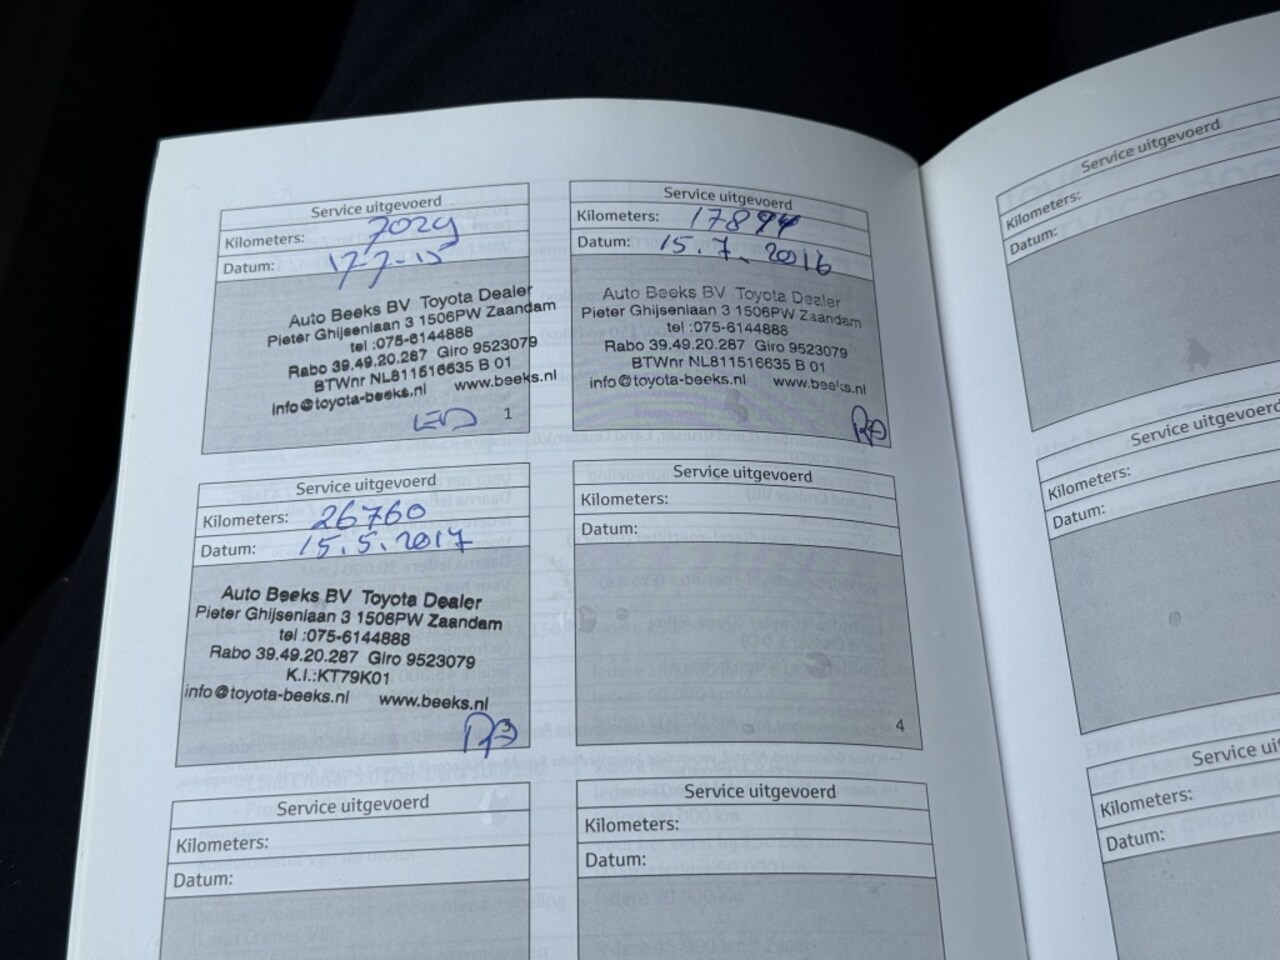 Service uitgevoerd
Kilometers: 7029
Datum: 17-7-15
Auto Beeks BV Toyota Dealer
Pieter Ghijsenlaan 3 1506PW Zaandam
tel :075-6144888
Rabo 39.49.20.287 Giro 9523079
BTWnr NL811516635 B 01
info@toyota-beeks.nl www.beeks.nl
1
Service uitgevoerd
Kilometers: 17894
Datum: 15.7.2016
Auto Beeks BV Toyota Dealer
Pieter Ghijsenlaan 3 1506PW Zaandam
tel :075-6144888
Rabo 39.49.20.287 Giro 9523079
BTWnr NL811516635 B 01
info@toyota-beeks.nl www.beeks.nl
Service uitgevoerd
Kilometers: 26760
Datum: 15.5.2017
Auto Beeks BV Toyota Dealer
Pieter Ghijsenlaan 3 1506PW Zaandam
tel :075-6144888
Rabo 39.49.20.287 Giro 9523079
K.I.:KT79K01
info@toyota-beeks.nl www.beeks.nl
3
Service uitgevoerd
Kilometers:
Datum:
4
Service uitgevoerd
Kilometers:
Datum:
Service uitgevoerd
Kilometers:
Datum:
Service uitgevoerd
Kilometers:
Datum:
Service uitgevoerd
Kilometers:
Datum:
Service
Kilometers:
Datum: